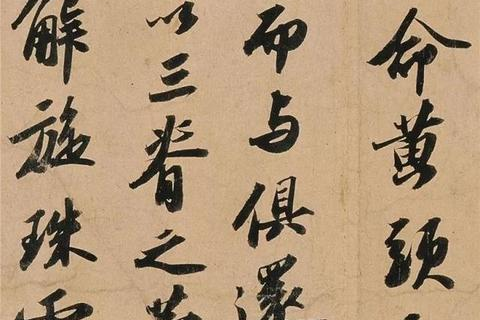 命黄頭
而与俱還
以三脊之菅
解旋珠零